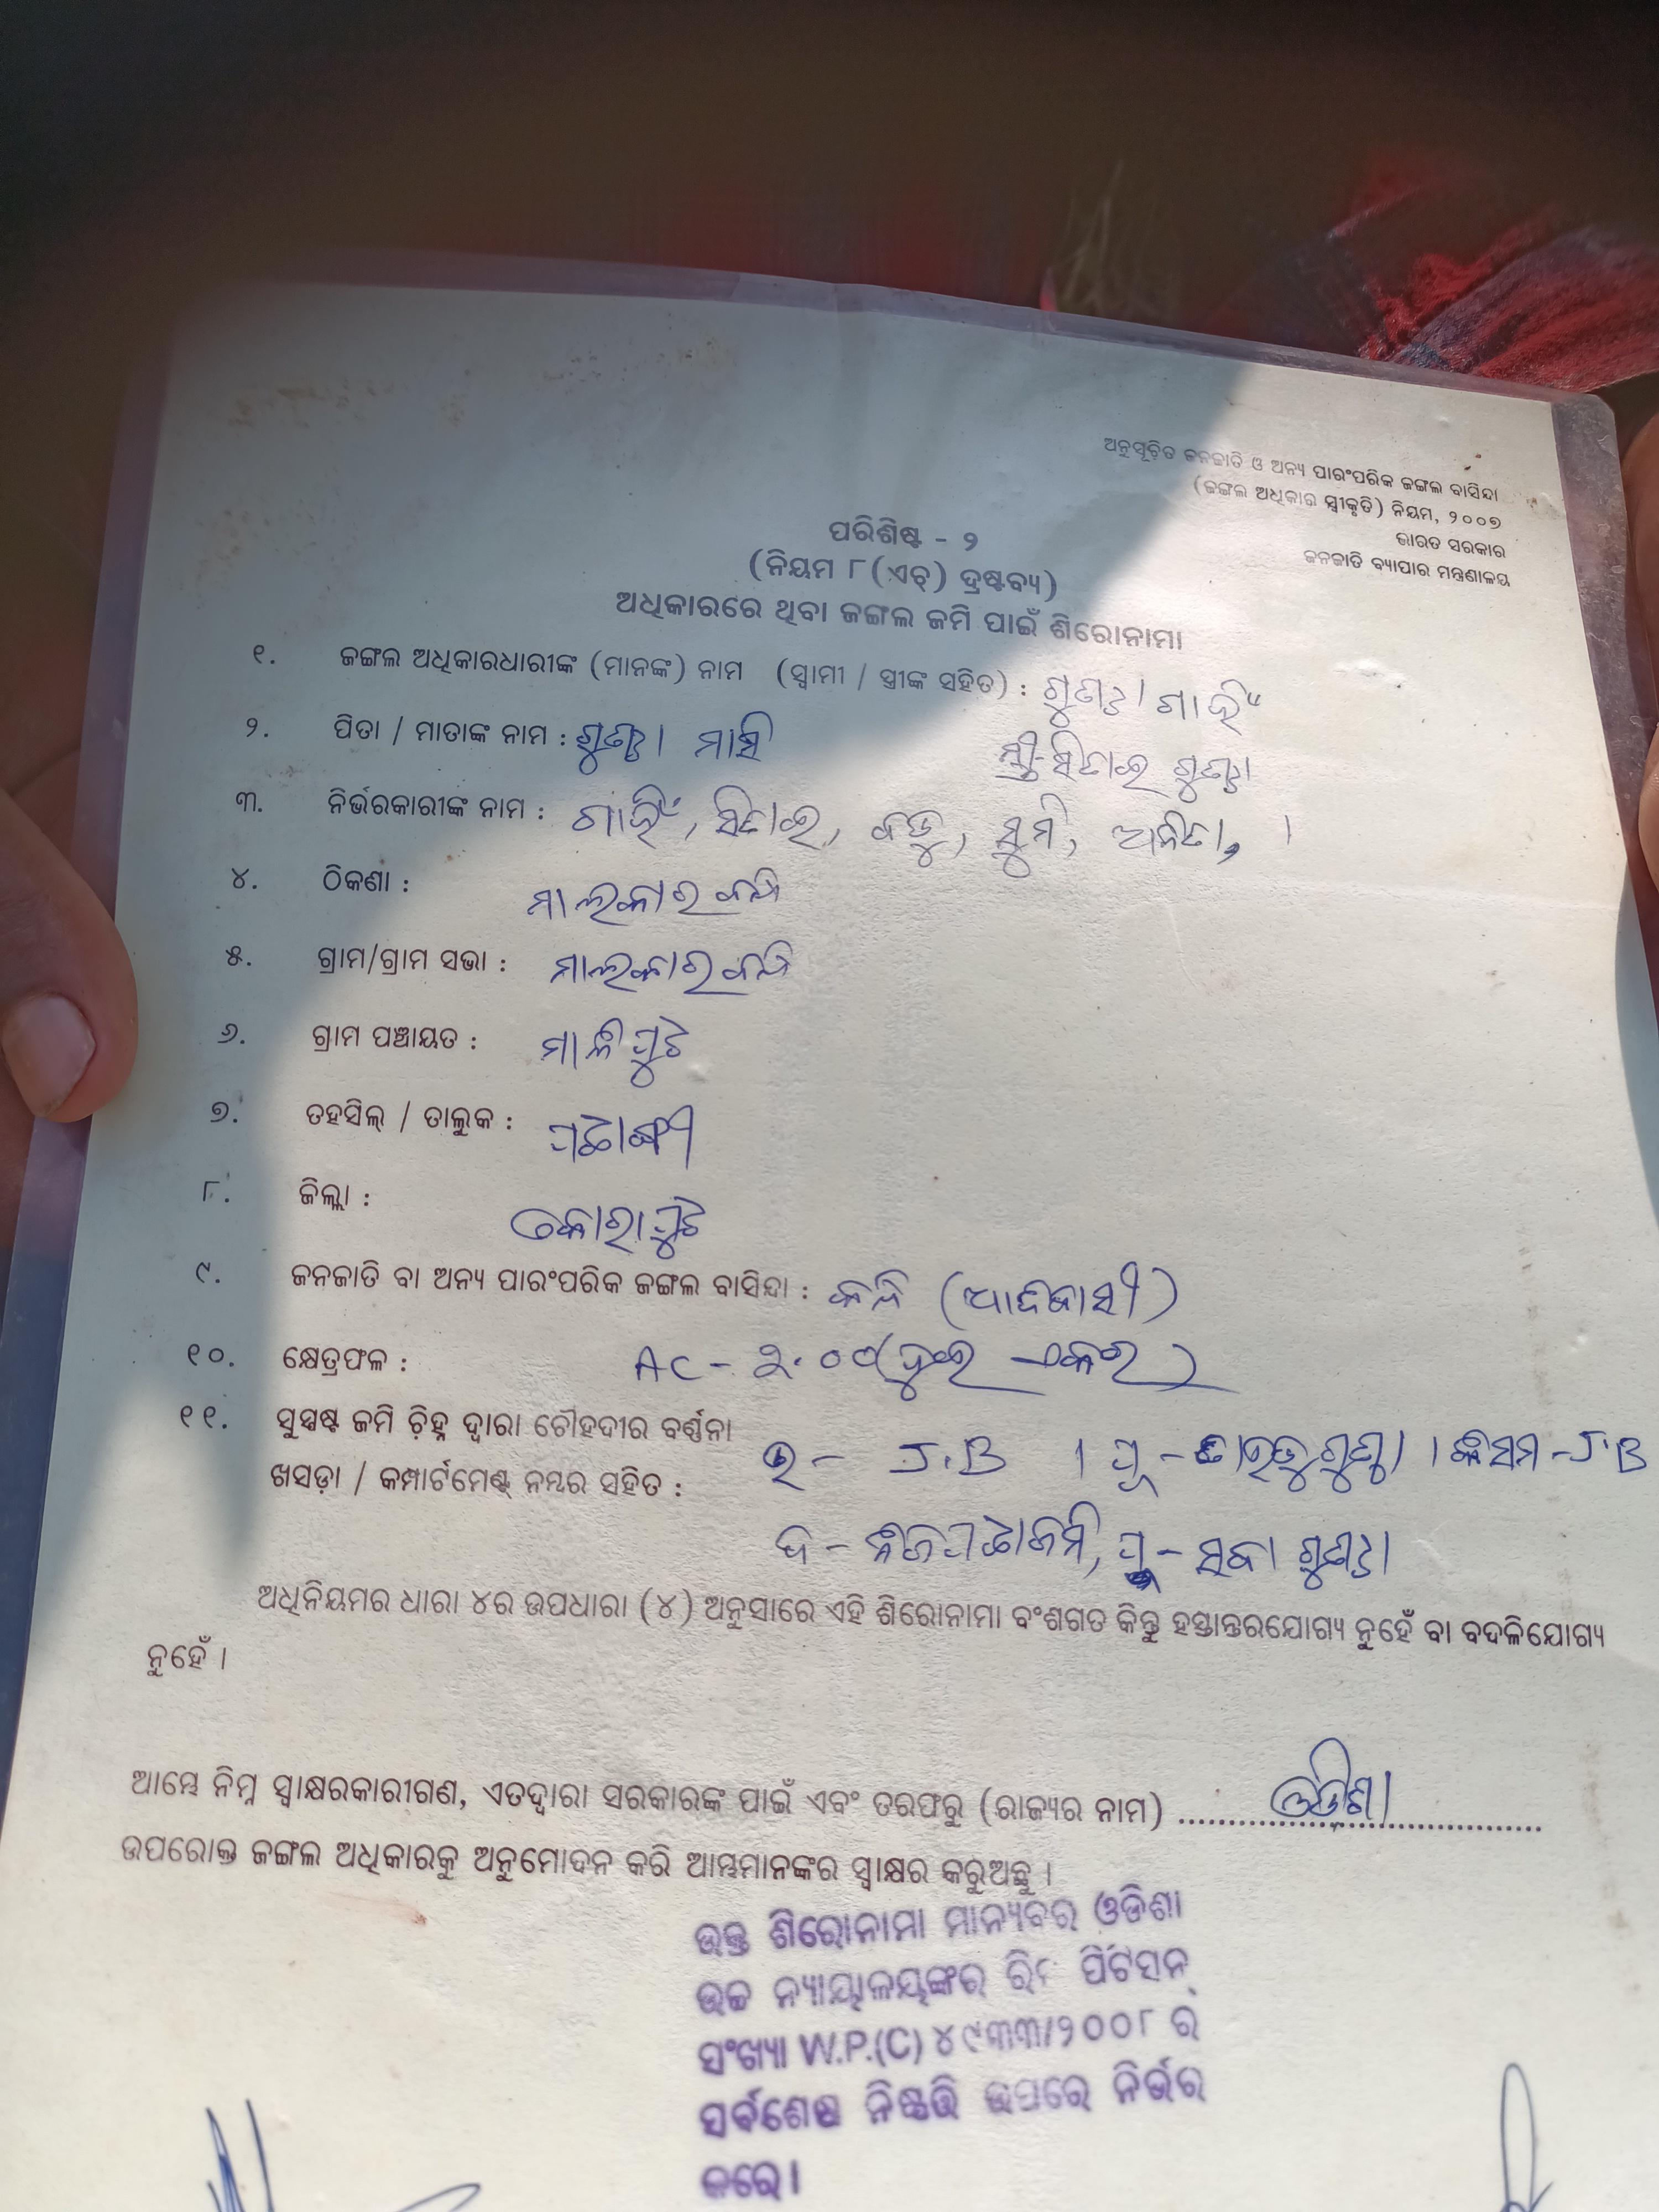 ଅନୁସୂଚିତ ଜନଜାତି ଓ ଅନ୍ୟ ପାରଂପରିକ ଜଙ୍ଗଲ ବାସିନ୍ଦା
(ଜଙ୍ଗଲ ଅଧିକାର ସ୍ୱୀକୃତି) ନିୟମ, ୨୦୦୭
ଭାରତ ସରକାର
ଜନଜାତି ବ୍ୟାପାର ମନ୍ତ୍ରଣାଳୟ
ପରିଶିଷ୍ଟ - ୨
(ନିୟମ ୮(ଏଚ୍) ଦ୍ରଷ୍ଟବ୍ୟ)
ଅଧିକାରରେ ଥିବା ଜଙ୍ଗଲ ଜମି ପାଇଁ ଶିରୋନାମା
୧. ଜଙ୍ଗଲ ଅଧିକାରଧାରୀଙ୍କ (ମାନଙ୍କ) ନାମ (ସ୍ୱାମୀ / ସ୍ତ୍ରୀଙ୍କ ସହିତ) : ଗୁଣ୍ଠା
୨. ପିତା / ମାତାଙ୍କ ନାମ : ଗୁଣ୍ଠା ମାସି ସ୍ତ୍ରୀ-ସିତାଇ ଗୁଣ୍ଠା
୩. ନିର୍ଭରକାରୀଙ୍କ ନାମ : ସିତାଇ, ସୁମି, ଅନିତା, ।
୪. ଠିକଣା : ମାଲକାରବନ୍ଧ
୫. ଗ୍ରାମ/ଗ୍ରାମ ସଭା : ମାଲକାରବନ୍ଧ
୬. ଗ୍ରାମ ପଞ୍ଚାୟତ : ମାଳିପୁଟ
୭. ତହସିଲ୍ / ତାଲୁକ : ପଟାଙ୍ଗୀ
୮. ଜିଲ୍ଲା : କୋରାପୁଟ
୯. ଜନଜାତି ବା ଅନ୍ୟ ପାରଂପରିକ ଜଙ୍ଗଲ ବାସିନ୍ଦା : କନ୍ଧ (ଆଦିବାସୀ)
୧୦. କ୍ଷେତ୍ରଫଳ : AC - ୨.୦୦(ଦୁଇ ଏକର)
୧୧. ସୁସ୍ପଷ୍ଟ ଜମି ଚିହ୍ନ ଦ୍ୱାରା ଚୌହଦୀର ବର୍ଣ୍ଣନା
ଖସଡ଼ା / କମ୍ପାର୍ଟମେଣ୍ଟ ନମ୍ବର ସହିତ : ଉ - J.B । ପୂ - ଗୁଣ୍ଠା । କିସମ - J.B
ଦ - ନିଜପଟ୍ଟାଜମି, ଗୁଣ୍ଠା
ଅଧିନିୟମର ଧାରା ୪ର ଉପଧାରା (୪) ଅନୁସାରେ ଏହି ଶିରୋନାମା ବଂଶଗତ କିନ୍ତୁ ହସ୍ତାନ୍ତରଯୋଗ୍ୟ ନୁହେଁ ବା ବଦଳିଯୋଗ୍ୟ
ନୁହେଁ ।
ଆମ୍ଭେ ନିମ୍ନ ସ୍ୱାକ୍ଷରକାରୀଗଣ, ଏତଦ୍ୱାରା ସରକାରଙ୍କ ପାଇଁ ଏବଂ ତରଫରୁ (ରାଜ୍ୟର ନାମ) ଓଡିଶା
ଉପରୋକ୍ତ ଜଙ୍ଗଲ ଅଧିକାରକୁ ଅନୁମୋଦନ କରି ଆମ୍ଭମାନଙ୍କର ସ୍ୱାକ୍ଷର କରୁଅଛୁ ।
ଉକ୍ତ ଶିରୋନାମା ମାନ୍ୟବର ଓଡିଶା
ଉଚ୍ଚ ନ୍ୟାୟାଳୟଙ୍କର ରିଟ ପିଟିସନ୍
ସଂଖ୍ୟା W.P.(C) ୪୯୩୩/୨୦୦୮ ର
ସର୍ବଶେଷ ନିଷ୍ପତ୍ତି ଉପରେ ନିର୍ଭର
କରେ ।